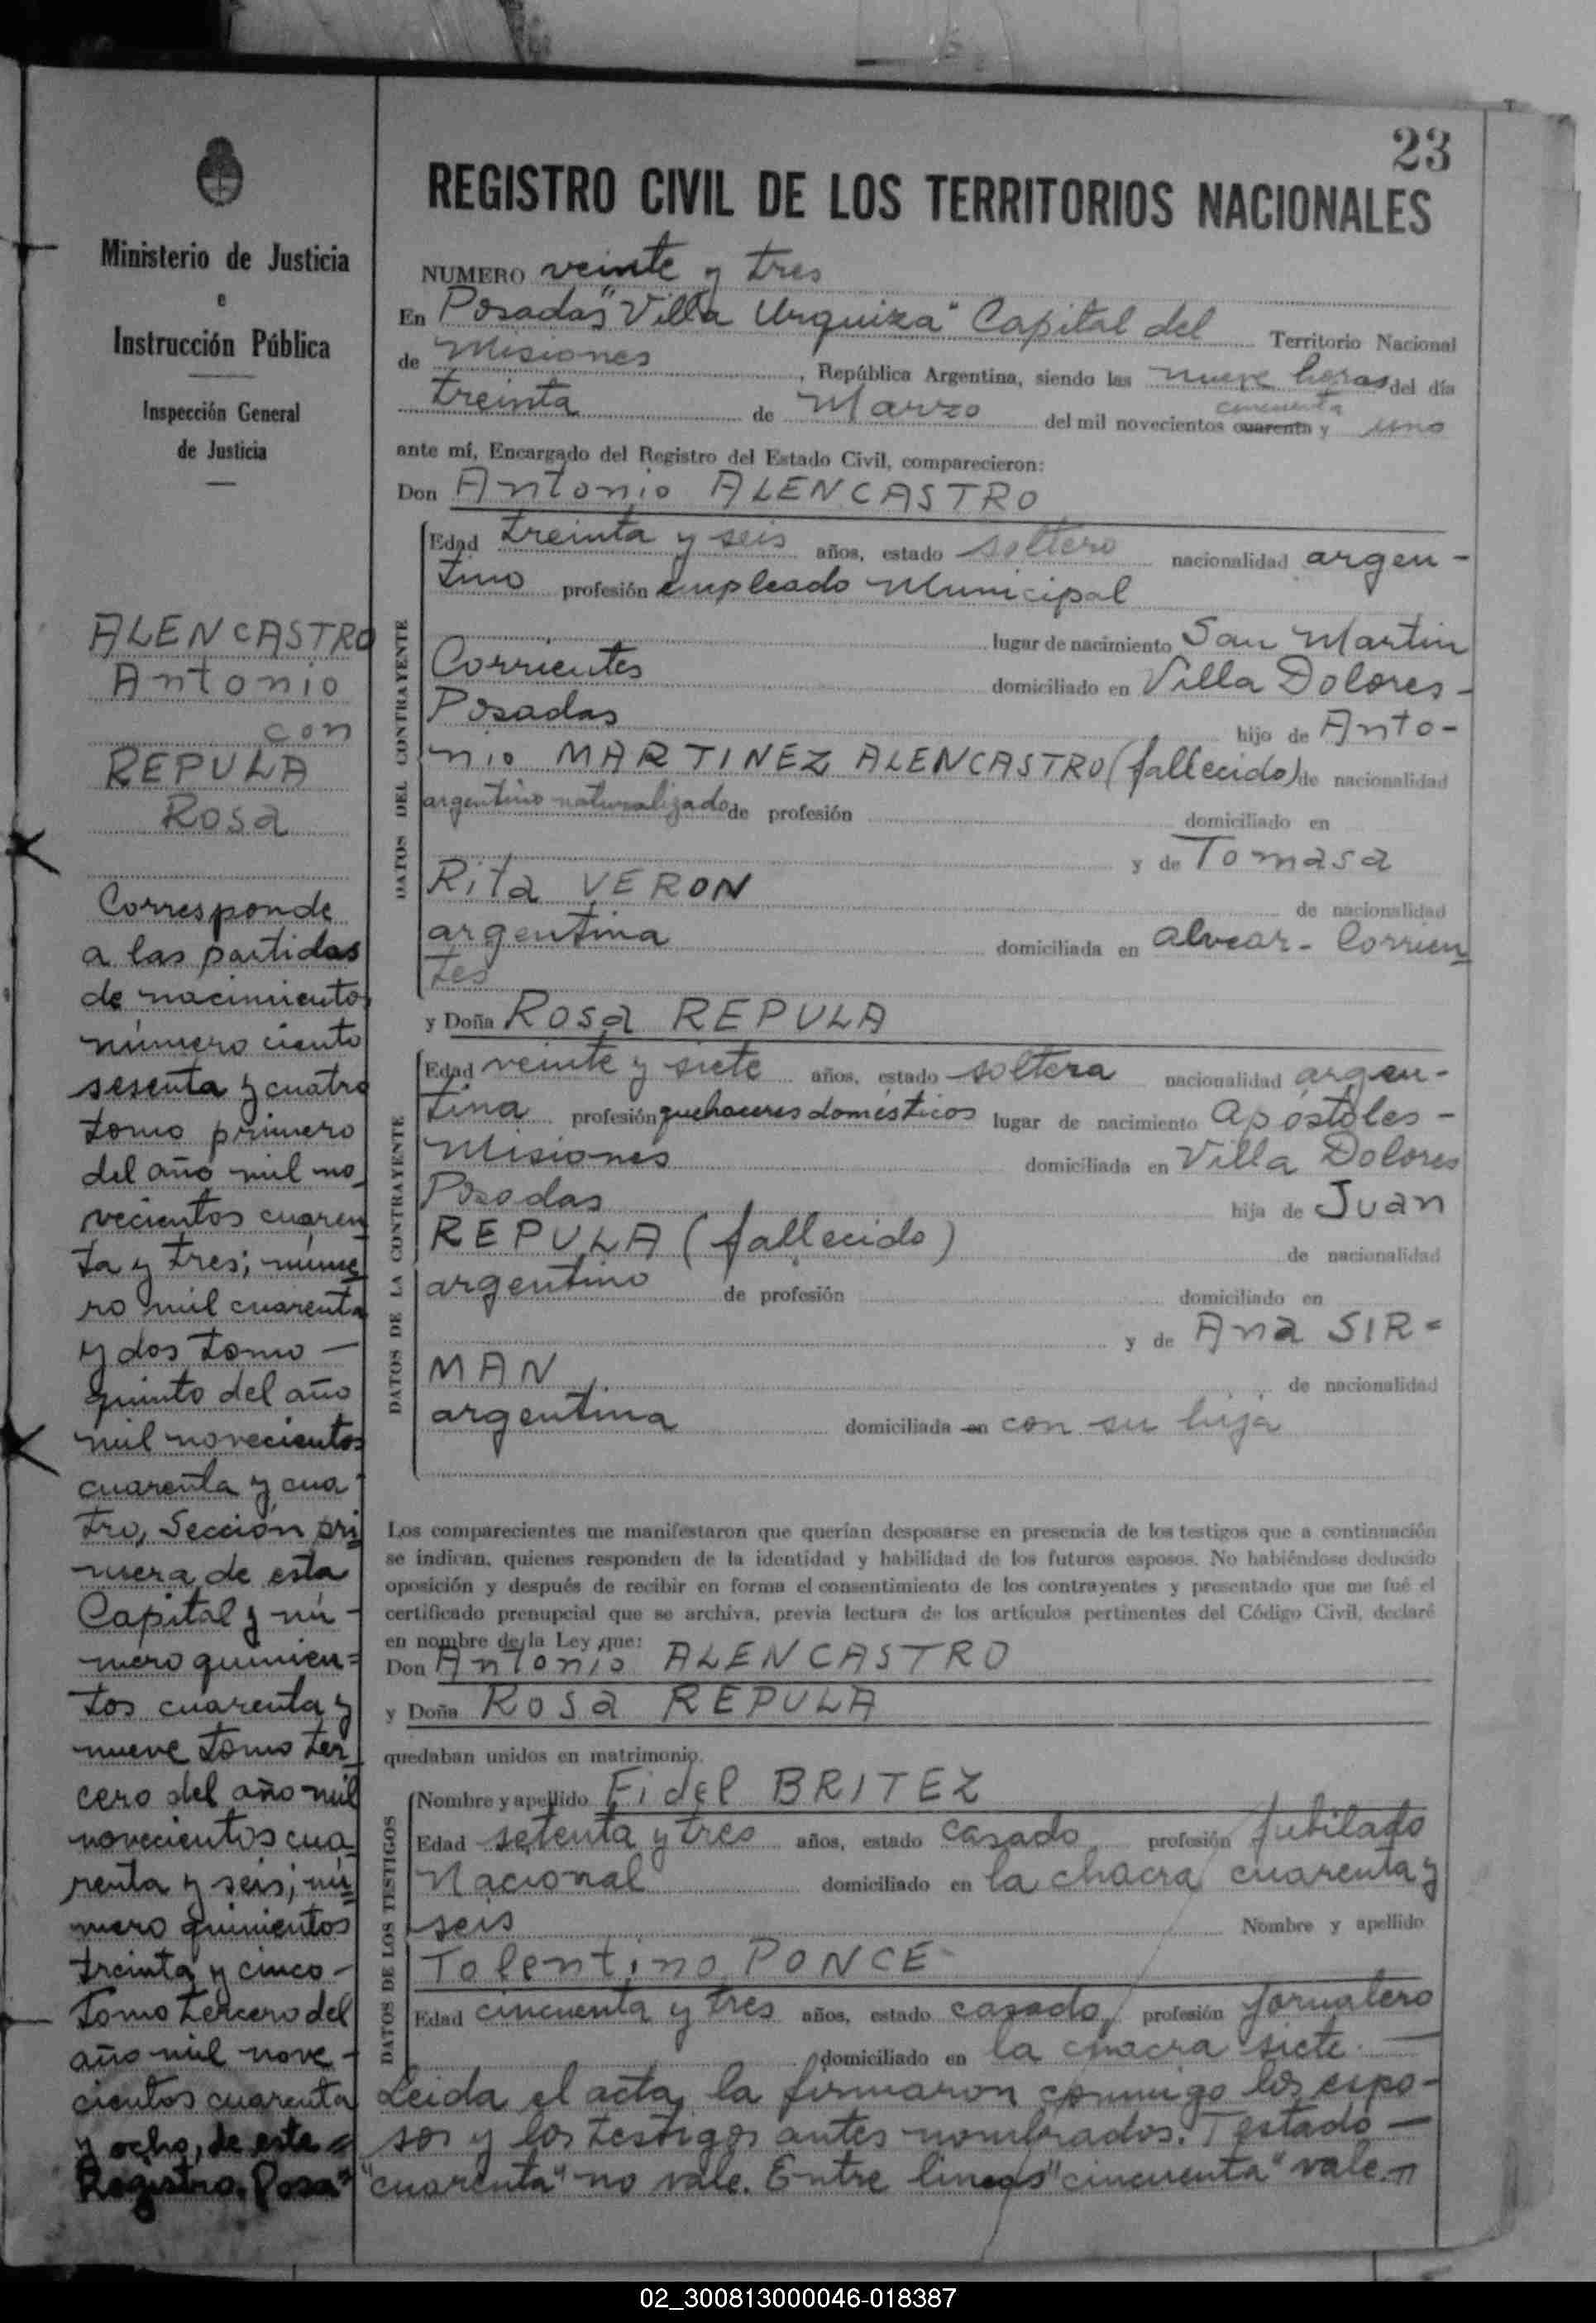 23
REGISTRO CIVIL DE LOS TERRITORIOS NACIONALES
Ministerio de Justicia
e
Instrucción Pública
Inspección General
de Justicia
ALENCASTRO
Antonio
con
REPULA
Rosa
Corresponde
a las partidas
de nacimientos
número ciento
sesenta y cuatro
tomo primero
del año mil no
vecientos cuaren
ta y tres; núme
ro mil cuarenta
y dos tomo —
quinto del año
mil novecientos
cuarenta y cua
tro, Sección pri
mera de esta
Capital y nú-
mero quinien=
tos cuarenta y
nueve tomo ter
cero del año mil
novecientos cua
renta y seis; nú
mero quinientos
treinta y cinco -
tomo tercero del
año mil nove-
cientos cuarenta
y ocho, de este
Registro. Posa"
NUMERO veinte y tres
En Posadas "Villa Urquiza" Capital del Territorio Nacional
de Misiones, República Argentina, siendo las nueve horas del día
treinta de Marzo del mil novecientos cuarenta cincuenta y uno
ante mí, Encargado del Registro del Estado Civil, comparecieron:
Don Antonio ALENCASTRO
DATOS DEL CONTRAYENTE
Edad treinta y seis años, estado soltero nacionalidad argen-
tino profesión empleado Municipal
lugar de nacimiento San Martin
Corrientes domiciliado en Villa Dolores-
Posadas hijo de Anto-
nio MARTINEZ ALENCASTRO (fallecido) de nacionalidad
argentino naturalizado de profesión domiciliado en
y de Tomasa
Rita VERON de nacionalidad
argentina domiciliada en Alvear - Corrien
tes
y Doña Rosa REPULA
DATOS DE LA CONTRAYENTE
Edad veinte y siete años, estado soltera nacionalidad argen-
tina profesión quehaceres domésticos lugar de nacimiento Apóstoles -
Misiones domiciliada en Villa Dolores
Posadas hija de Juan
REPULA (fallecido) de nacionalidad
argentino de profesión domiciliado en
y de Ana SIR=
MAN de nacionalidad
argentina domiciliada en con su hija
Los comparecientes me manifestaron que querían desposarse en presencia de los testigos que a continuación
se indican, quienes responden de la identidad y habilidad de los futuros esposos. No habiéndose deducido
oposición y después de recibir en forma el consentimiento de los contrayentes y presentado que me fué el
certificado prenupcial que se archiva, previa lectura de los artículos pertinentes del Código Civil, declaré
en nombre de la Ley que:
Don Antonio ALENCASTRO
y Doña Rosa REPULA
quedaban unidos en matrimonio.
DATOS DE LOS TESTIGOS
Nombre y apellido Fidel BRITEZ
Edad setenta y tres años, estado casado profesión Jubilado
Nacional domiciliado en la chacra cuarenta y
seis Nombre y apellido
Tolentino PONCE
Edad cincuenta y tres años, estado casado profesión jornalero
domiciliado en la chacra siete. —
Leida el acta, la firmaron conmigo los espo-
sos y los testigos antes nombrados. Testado —
"cuarenta" no vale. Entre lineas "cincuenta" vale.-
02_300813000046-018387